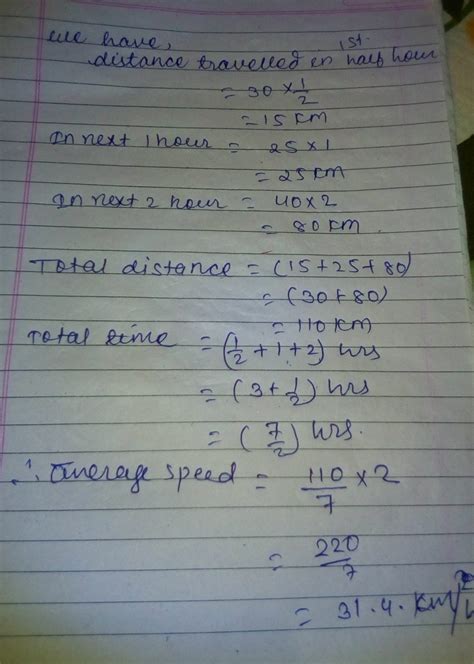 we have,
distance travelled in 1st. half hour
= 30 × 1/2
= 15 KM
In next 1 hour = 25 × 1
= 25 KM
In next 2 hour = 40 × 2
= 80 KM
Total distance = (15+25+80)
= (30+80)
= 110 KM
Total time = (1/2 + 1 + 2) hrs
= (3 + 1/2) hrs
= (7/2) hrs.
∴ Average speed = 110/7 × 2
= 220/7
= 31.4. KM/